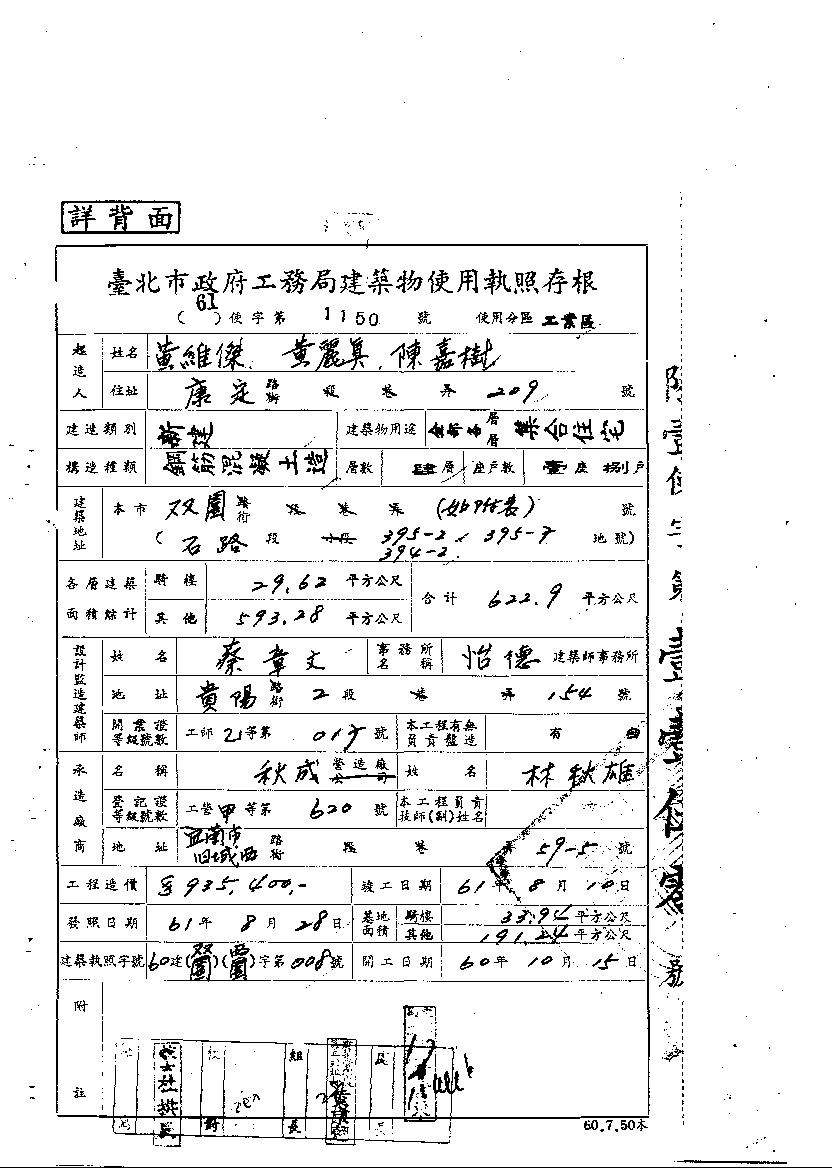 詳背面
臺北市政府工務局建築物使用執照存根
(61)使字第1150號 使用分區 工業區
起造人 姓名 黃維傑、黃麗真、陳嘉樹
住址 康定路街 段 巷 弄 209 號
建造類別 新建 建築物用途 全部各層層 集合住宅
構造種類 鋼筋混凝土造 層數 肆層 座戶數 壹座 捌戶
建築地址 本市 双園路街 段 巷 弄 (如附表) 號
(石路段 小段 395-2、395-7 394-2 地號)
各層建築面積綜計 騎樓 29.62 平方公尺 合計 622.9 平方公尺
其他 593.28 平方公尺
設計監造建築師 姓名 蔡章文 事務所名稱 怡德 建築師事務所
地址 貴陽路街 2段 巷 弄 154 號
開業證等級號數 工師乙等第 017 號 本工程有無負責監造 有
承造廠商 名稱 秋成 營造廠公司 姓名 林秋雄
登記證等級號數 工營甲等第 620 號 本工程負責技師(副)姓名
地址 路街 段 巷 弄 59-5 號
工程造價 935,400.- 竣工日期 61年8月10日
發照日期 61年8月28日 基地面積 騎樓 33.94 平方公尺
其他 191.24 平方公尺
建築執照字號 60建(双園)字第008號 開工日期 60年10月15日
附註
校對
組長
60.7.50本